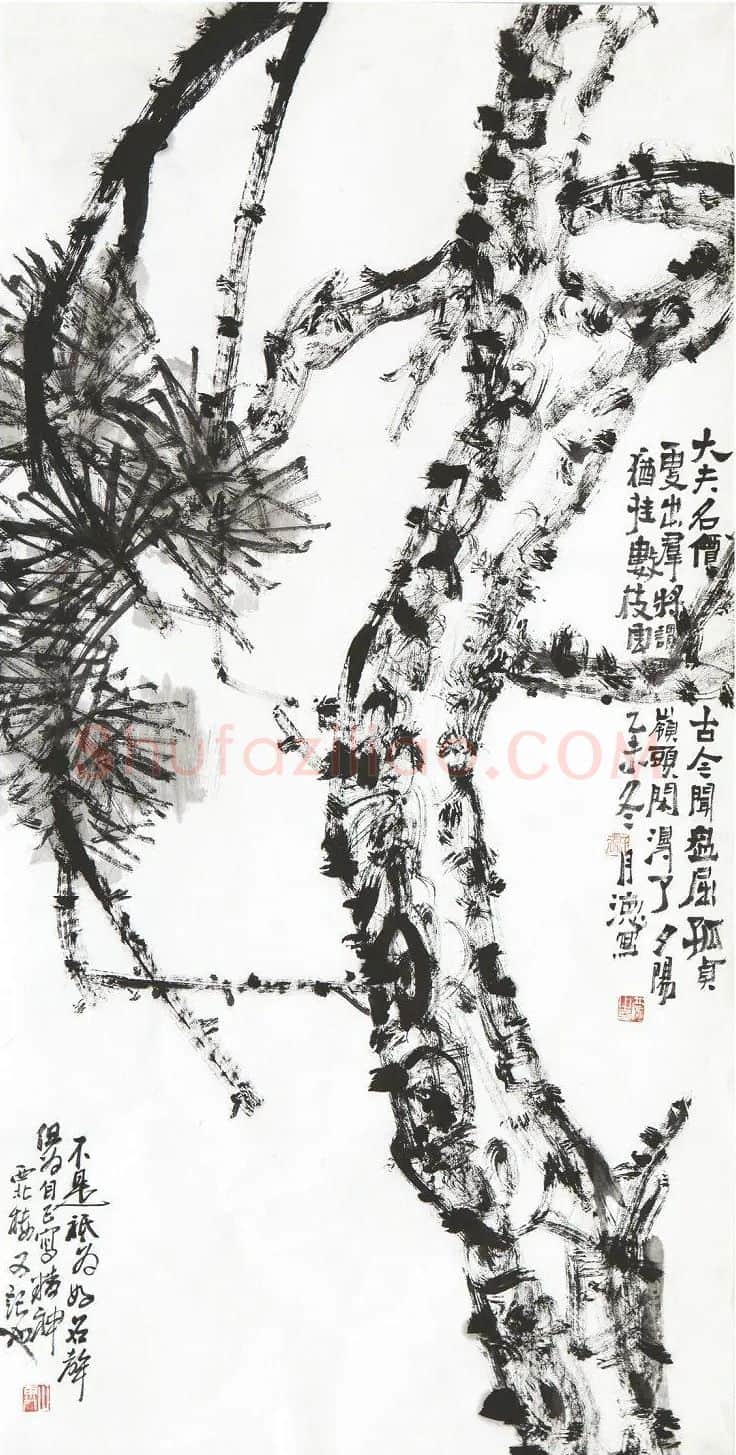 大夫名價古今聞盤屈孤貞
更出羣將謂嶺頭閑得了夕陽
猶挂數枝雲乙未冬月德寫
不是祗為好名聲
但為自己寫精神
西北樓又記
Shufaziliao.COM